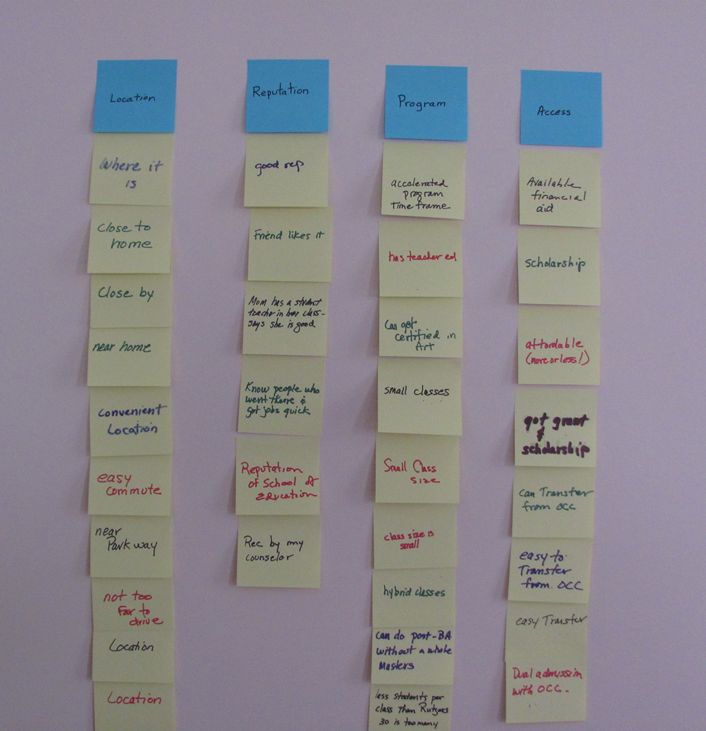 Location
Where it
is
Close to
home
Close by
near home
convenient
Location
easy
commute
near
Parkway
not too
far to
drive
Location
Location
Reputation
good rep
Friend likes it
Mom has a student
teacher in her class-
says she is good
Know people who
went there &
got jobs quick
Reputation
of School of
Education
Rec by my
counselor
Program
accelerated
program
Time frame
has teacher ed
Can get
certified in
Art
small classes
Small Class
size
class size is
small
hybrid classes
can do post-BA
without a whole
Masters
less students per
class than Rutgers
30 is too many
Access
Available
financial
aid
scholarship
affordable
(more or less!)
got grant
&
scholarship
can Transfer
from OCC
easy to
Transfer
from OCC
easy Transfer
Dual admission
with OCC.